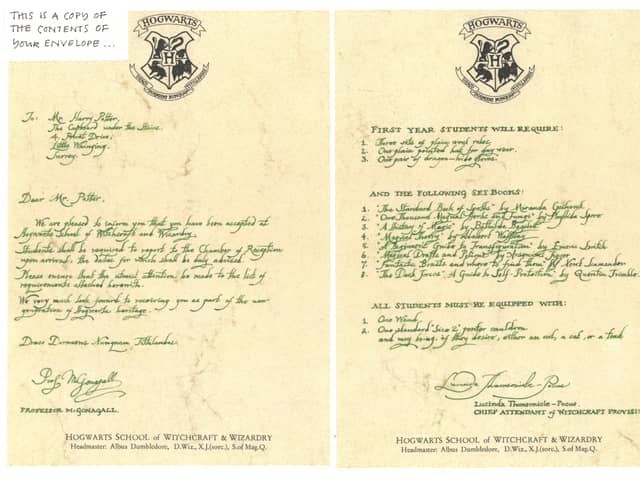 THIS IS A COPY OF
THE CONTENTS OF
YOUR ENVELOPE...
HOGWARTS
To: Mr. Harry Potter,
The Cupboard under the Stairs,
4, Privet Drive,
Little Whinging,
Surrey.
Dear Mr. Potter,
We are pleased to inform you that you have been accepted at
Hogwarts School of Witchcraft and Wizardry.
Students shall be required to report to the Chamber of Reception
upon arrival, the dates for which shall be duly advised.
Please ensure that the utmost attention be made to the list of
requirements attached herewith.
We very much look forward to receiving you as part of the new
generation of Hogwarts heritage.
Draco Dormiens Nunquam Titillandus.
Prof. McGonagall
PROFESSOR McGONAGALL
HOGWARTS SCHOOL of WITCHCRAFT & WIZARDRY
Headmaster: Albus Dumbledore, D.Wiz., X.J.(sorc.), S.of Mag.Q.
HOGWARTS
FIRST YEAR STUDENTS WILL REQUIRE:
1. Three sets of plain work robes
2. One plain pointed hat for day wear.
3. One pair of dragon-hide gloves.
AND THE FOLLOWING SET BOOKS:
1. "The Standard Book of Spells" by Miranda Goshawk
2. "One Thousand Magical Herbs and Fungi" by Phyllida Spore
3. "A History of Magic" by Bathilda Bagshot
4. "Magical Theory" by Adalbert Waffling
5. "A Beginners Guide to Transfiguration" by Emeric Switch
6. "Magical Drafts and Potions" by Arsenius Jigger
7. "Fantastic Beasts and where to Find them" by Newt Scamander
8. "The Dark Forces: A Guide to Self-Protection" by Quentin Trimble
ALL STUDENTS MUST BE EQUIPPED WITH:
1. One Wand,
2. One standard "Size 2" pewter cauldron
and may bring, if they desire, either an owl, a cat, or a toad
Lucinda Thomsonicle-Pocus
Lucinda Thomsonicle-Pocus
CHIEF ATTENDANT of WITCHCRAFT
HOGWARTS SCHOOL of WITCHCRAFT & WIZARDRY
Headmaster: Albus Dumbledore, D.Wiz., X.J.(sorc.), S.of Mag.Q.